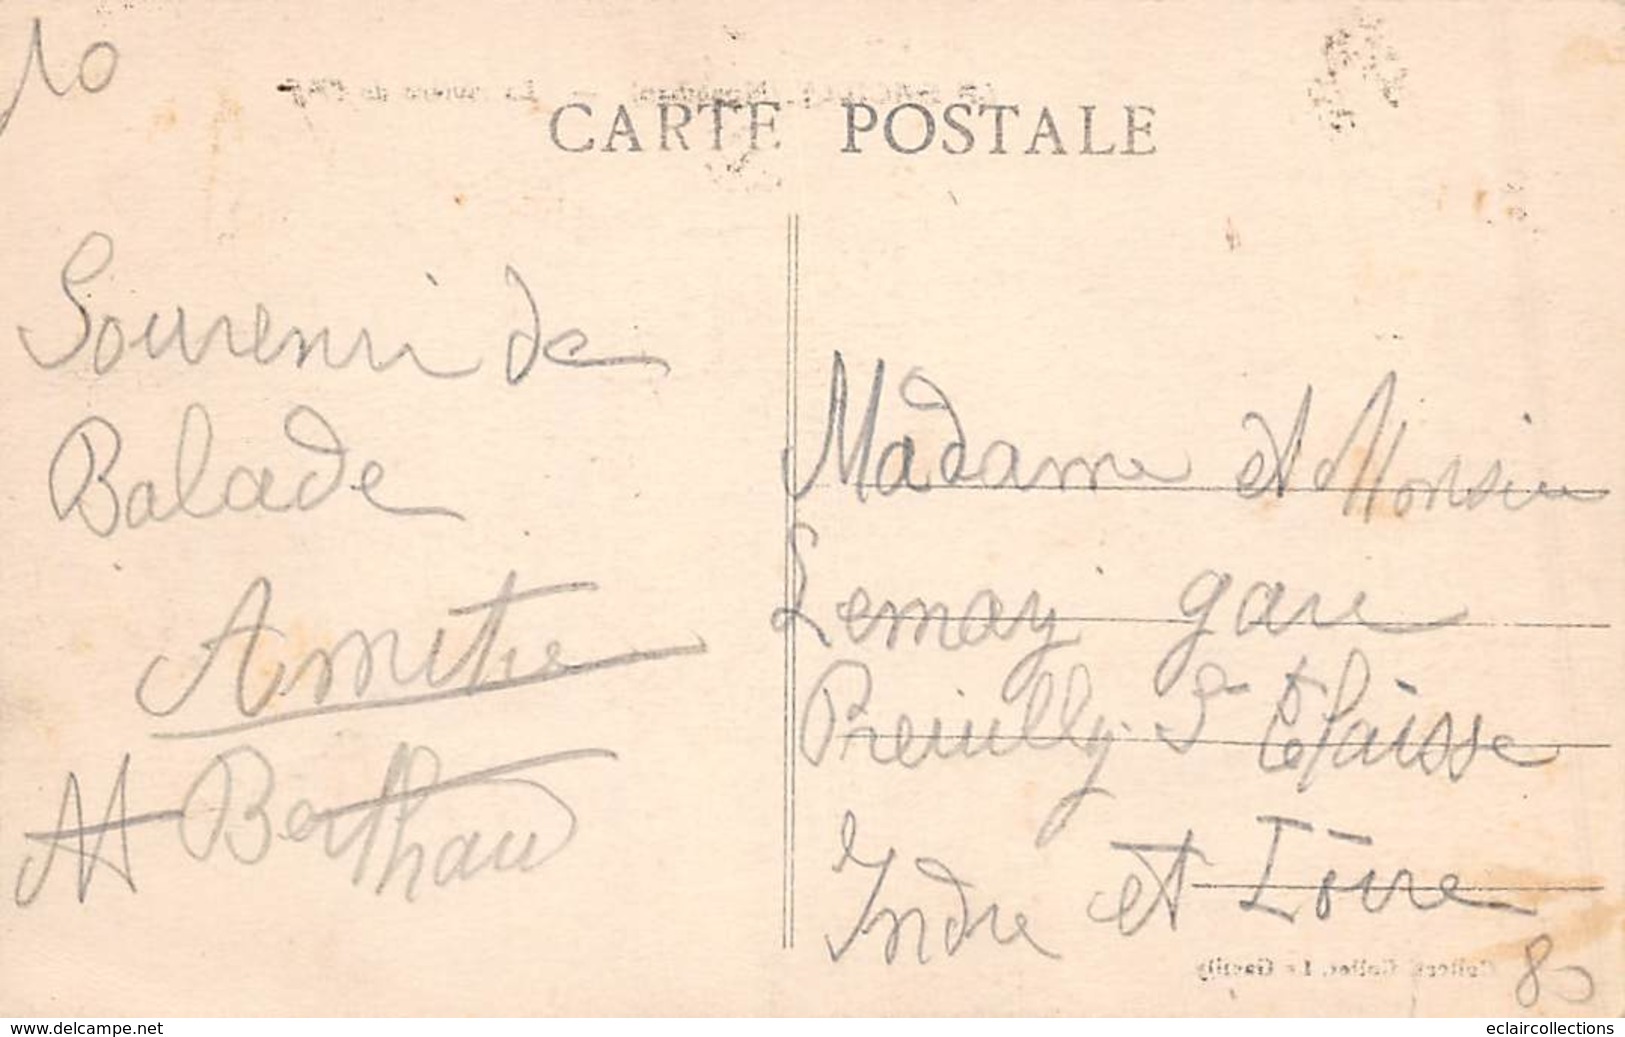 10
CARTE POSTALE
Souvenir de
Balade
Amitié
A Berthau
Madame et Monsieu
Lemay gare
Preuilly S
Indre et Loire
80
www.delcampe.net
eclaircollections